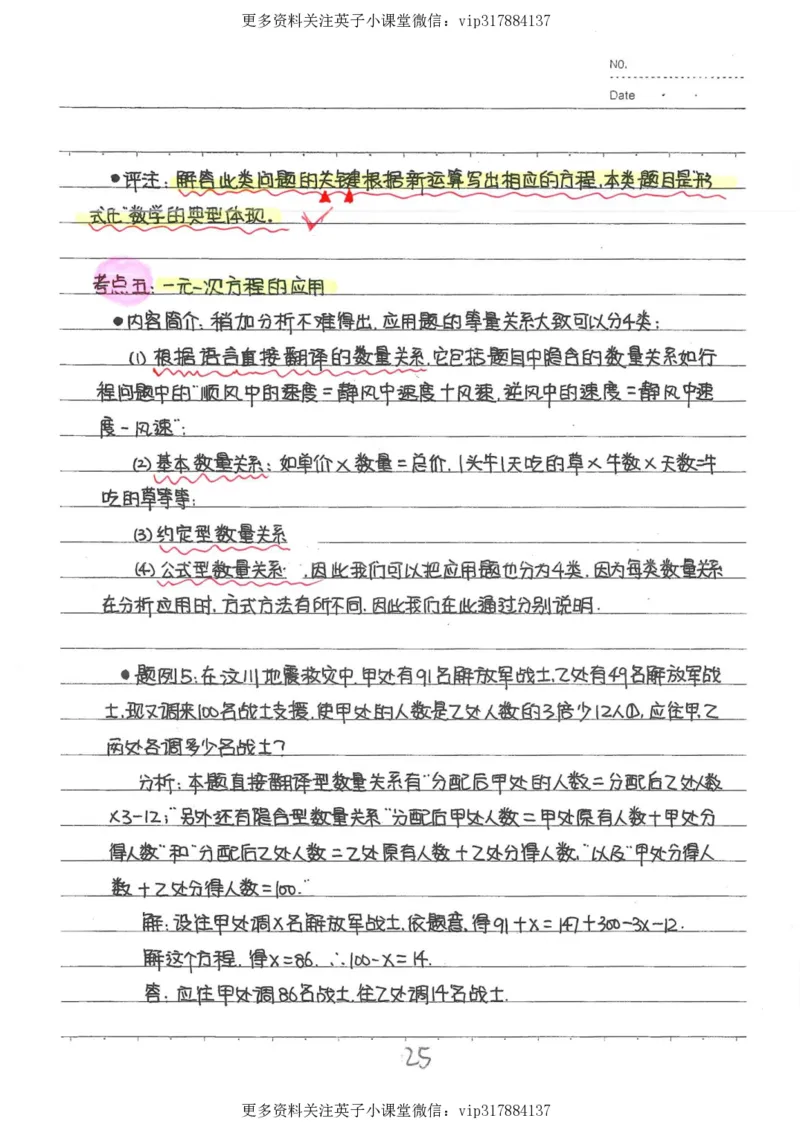 更多资料关注英子小课堂微信：vip317884137
NO.
Date
●评注：解答此类问题的关键根据新运算写出相应的方程，本类题目是“形
式化”数学的典型体现。
考点五：一元一次方程的应用
●内容简介：稍加分析不难得出，应用题的等量关系大致可以分4类：
(1) 根据语言直接翻译的数量关系，它包括题目中隐含的数量关系如行
程问题中的“顺风中的速度＝静风中速度＋风速，逆风中的速度＝静风中速
度－风速”；
(2) 基本数量关系：如单价×数量＝总价，1头牛1天吃的草×牛数×天数=牛
吃的草等等；
(3) 约定型数量关系
(4) 公式型数量关系，因此我们可以把应用题也分为4类，因为每类数量关系
在分析应用时，方式方法有所不同，因此我们在此通过分别说明．
●题例5：在汶川地震救灾中，甲处有91名解放军战士，乙处有49名解放军战
士，现又调来100名战士支援，使甲处的人数是乙处人数的3倍少12人①，应往甲、乙
两处各调多少名战士？
分析：本题直接翻译型数量关系有“分配后甲处的人数＝分配后乙处人数
×3－12；”另外还有隐含型数量关系“分配后甲处人数＝甲处原有人数＋甲处分
得人数”和“分配后乙处人数＝乙处原有人数＋乙处分得人数，”以及“甲处分得人
数＋乙处分得人数＝100．”
解：设往甲处调X名解放军战士，依题意，得91＋X＝147＋300－3X－12．
解这个方程，得X＝86．∴100－X＝14．
答：应往甲处调86名战士，往乙处调14名战士．
25
更多资料关注英子小课堂微信：vip317884137